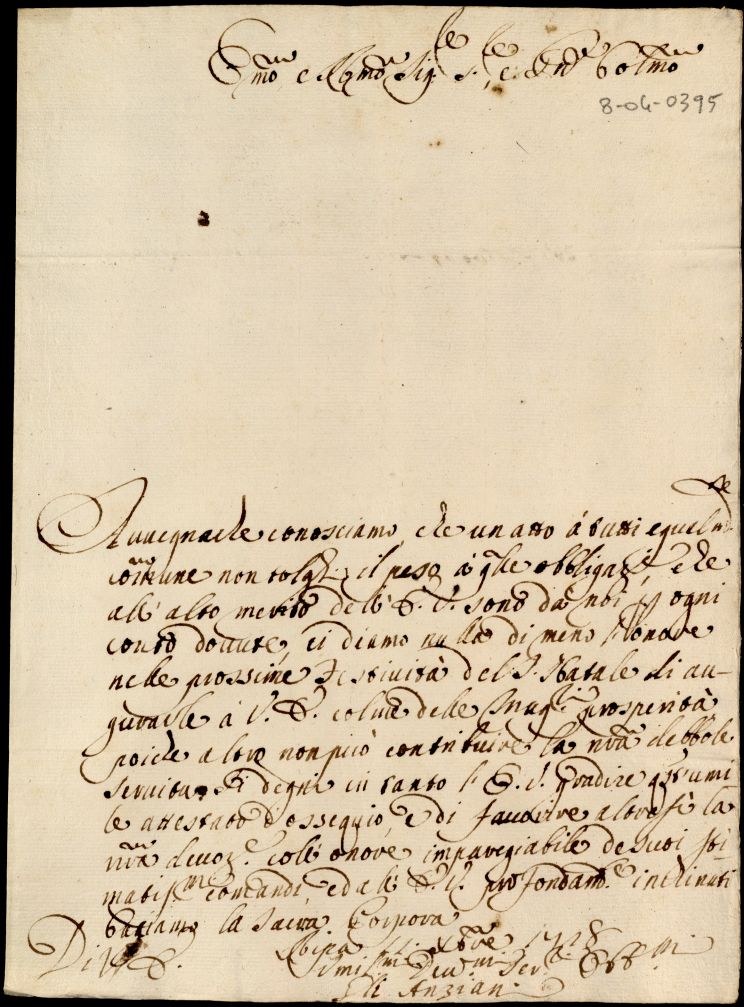 Emo e Rmo Sigr S., e Pne Colmo
8-04-0395
Avvegnache conosciamo, che un atto à tutti egualmte
comune non tolga il peso à qlle obbligni, che
all' alto merito dell' E. V. sono da noi p ogni
conto dovute, ci diamo nulla di meno l'onore
nelle prossime Festività del S. Natale di au-
gurarle à V. E. colme delle magri prosperità
poiche altro non può contribuire la nra debbole
servitù. Si degni in tanto l'E. V. gradire qsto umi-
le attestato d'ossequio, e di favorire altresì la
nra devoz.e coll' onore impareggiabile de suoi sti-
matissmi comandi, ed all' E. V. profondamte inclinati
baciamo la Sacra Porpora
Di V. E.
Ripa 1718
Umilmi Devmi Servi Obbmi
Gli Anziani